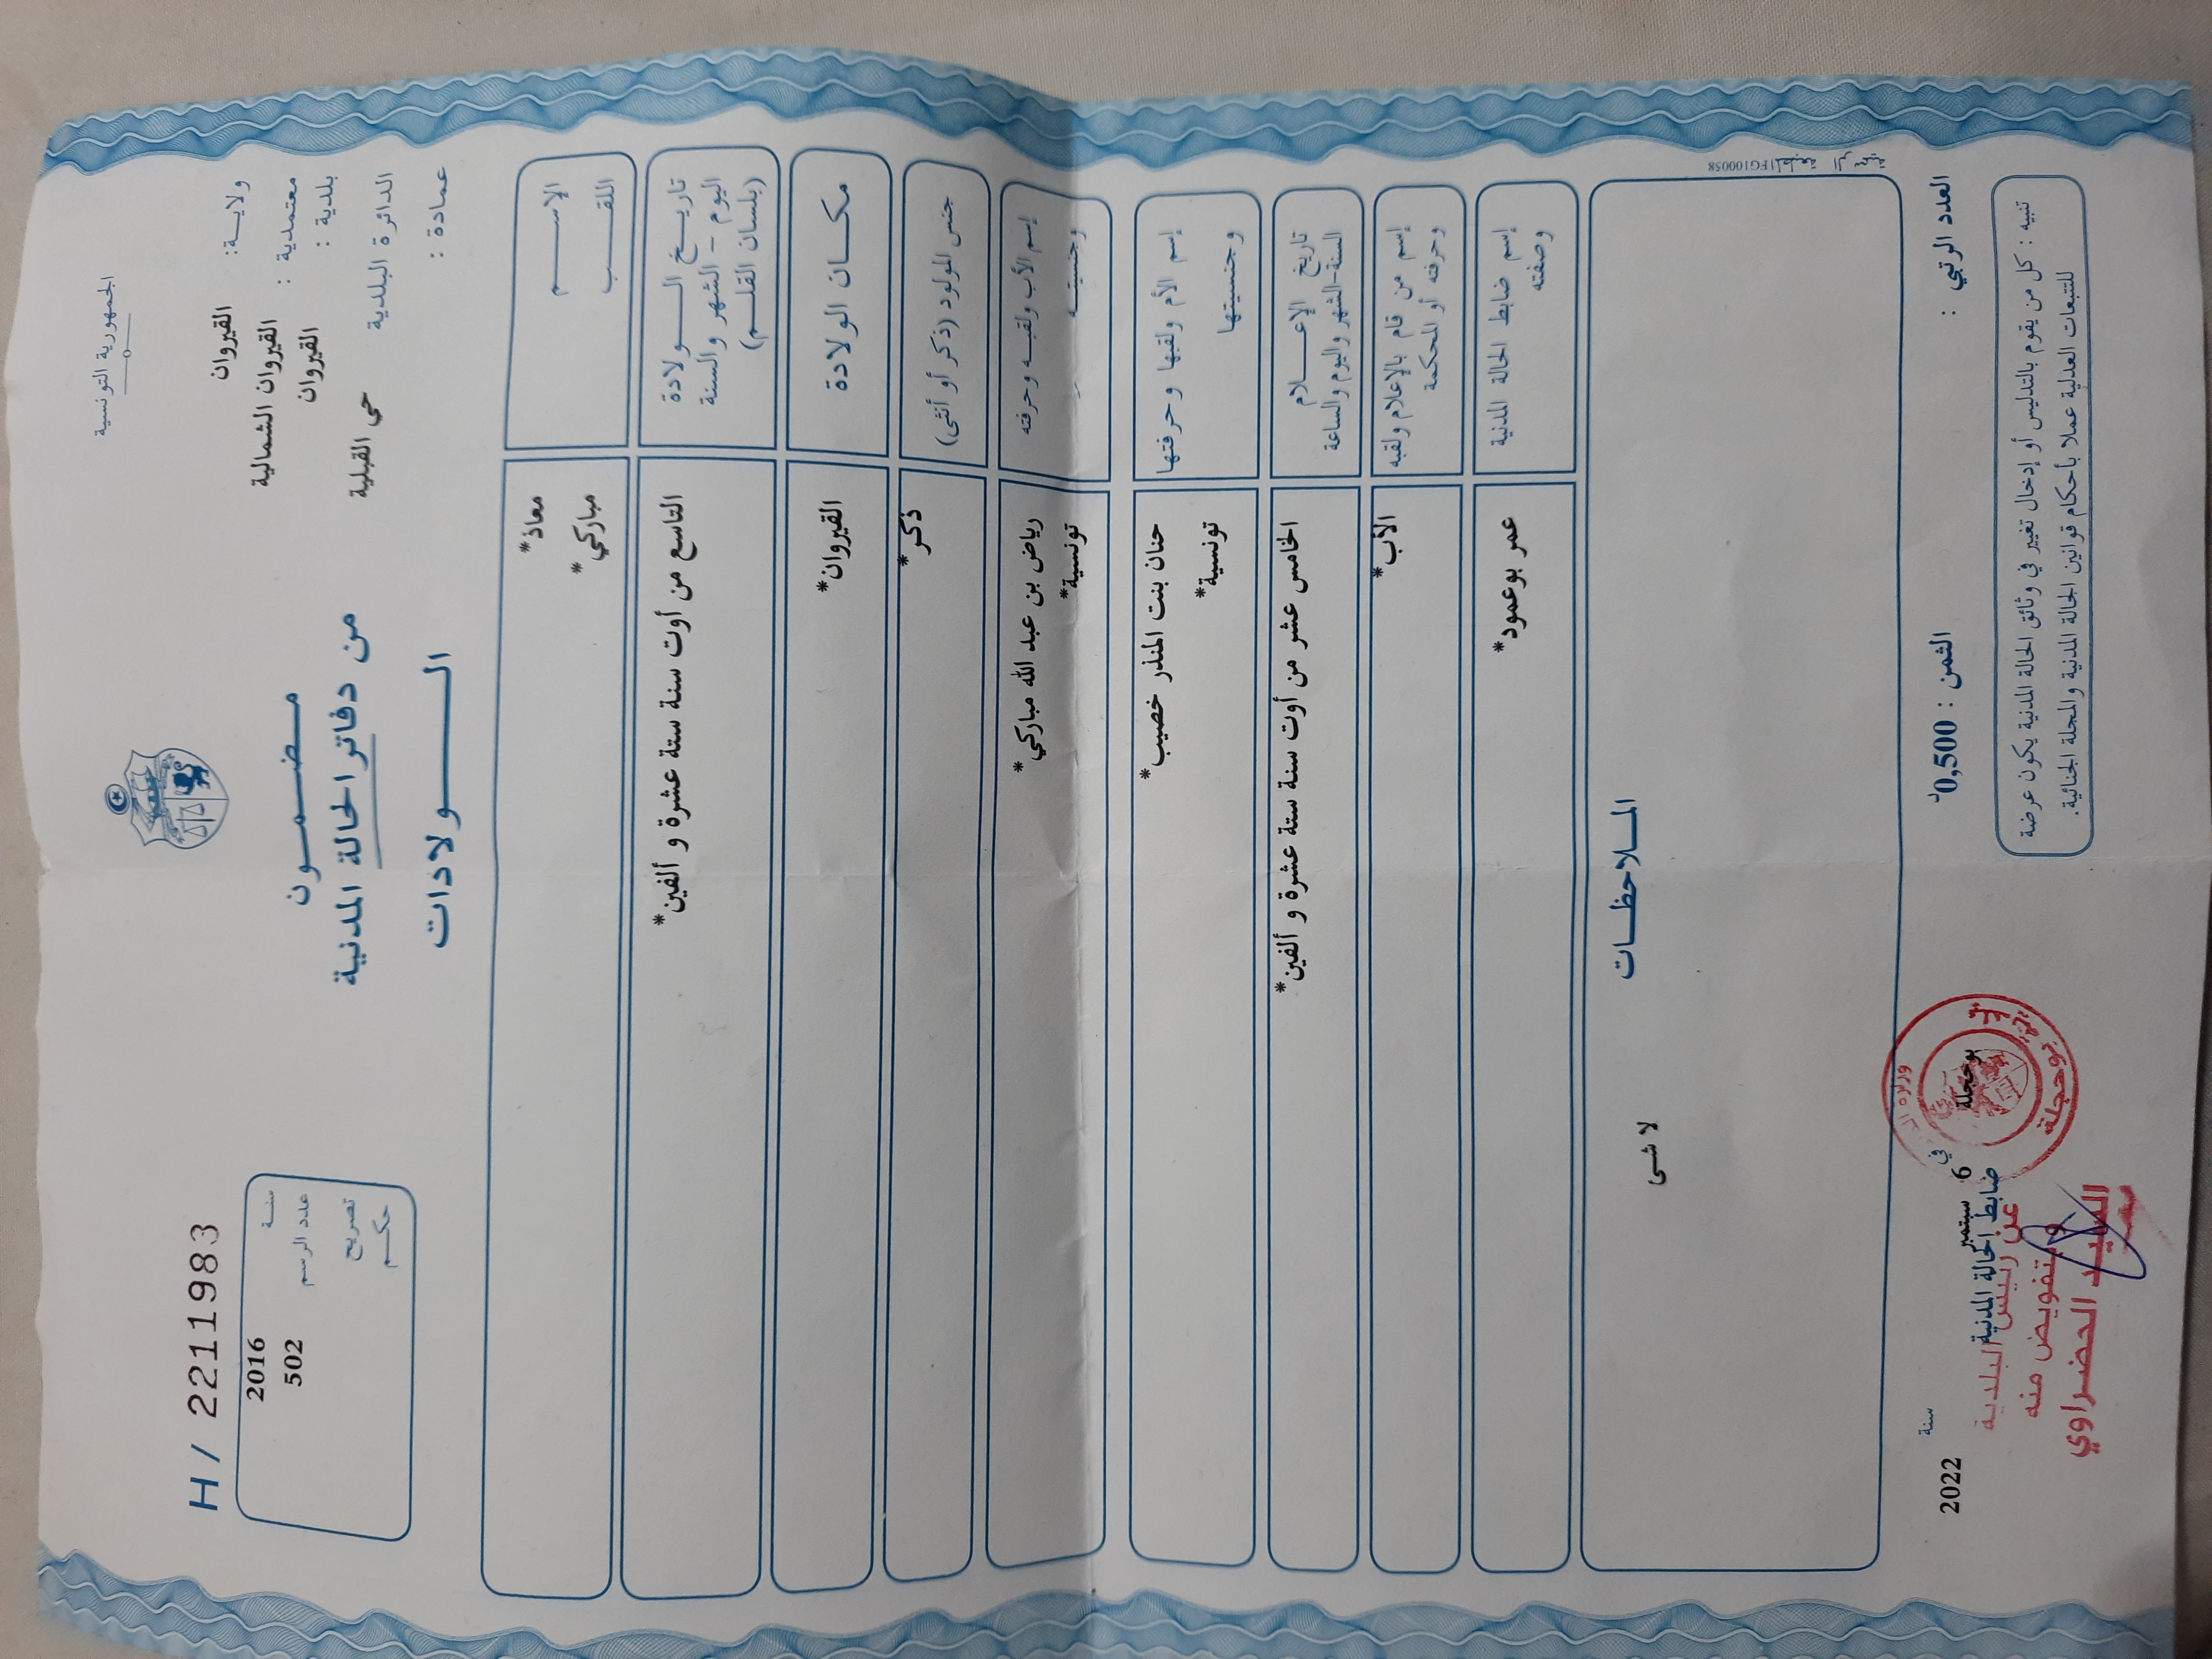 الجمهورية التونسية
ولايـــة : القيروان
معتمدية : القيروان الشمالية
بلدية : القيروان
الدائرة البلدية حي القبلية
عمادة :
مـــضـــمـــون
من دفاتر الحالة المدنية
الـــــولادات
H / 2211983
سنـــة 2016
عدد الرسم 502
تصريح
حكـــم
الإســـــم معاذ*
اللقـــب مباركي*
تاريـــخ الـــــولادة
اليوم – الشهر والسنة
(بلسان القلـــم)
التاسع من أوت سنة ستة عشرة و ألفين*
مكـــان الولادة القيروان*
جنس المولود (ذكر أو أنثى) ذكر*
إسم الأب ولقبـــه وحرفته رياض بن عبد الله مباركي*
وجنسيتـــه تونسية*
إسم الأم ولقبها وحرفتها حنان بنت المنذر خصيب*
وجنسيتها تونسية*
تاريخ الإعـــلام
السنة-الشهر واليوم والساعة
الخامس عشر من أوت سنة ستة عشرة و ألفين*
إسم من قام بالإعلام ولقبه
وحرفته أو المحكمة
الأب*
إسم ضابط الحالة المدنية
وصفته
عمر بوعمود*
المـــلاحظـــات
لا شى
1FG100058
العدد الرتبي :
الثمن : 0,500د
في بوحجلة 6 سبتمبر سنة 2022
ضابط الحالة المدنية
عن رئيس البلدية
وبتفويض منه
السيد الحضراوي
بوحجلة
تنبيه : كل من يقوم بالتدليس أو إدخال تغيير في وثائق الحالة المدنية يكون عرضة
للتتبعات العدلية عملا بأحكام قوانين الحالة المدنية والمجلة الجنائية.